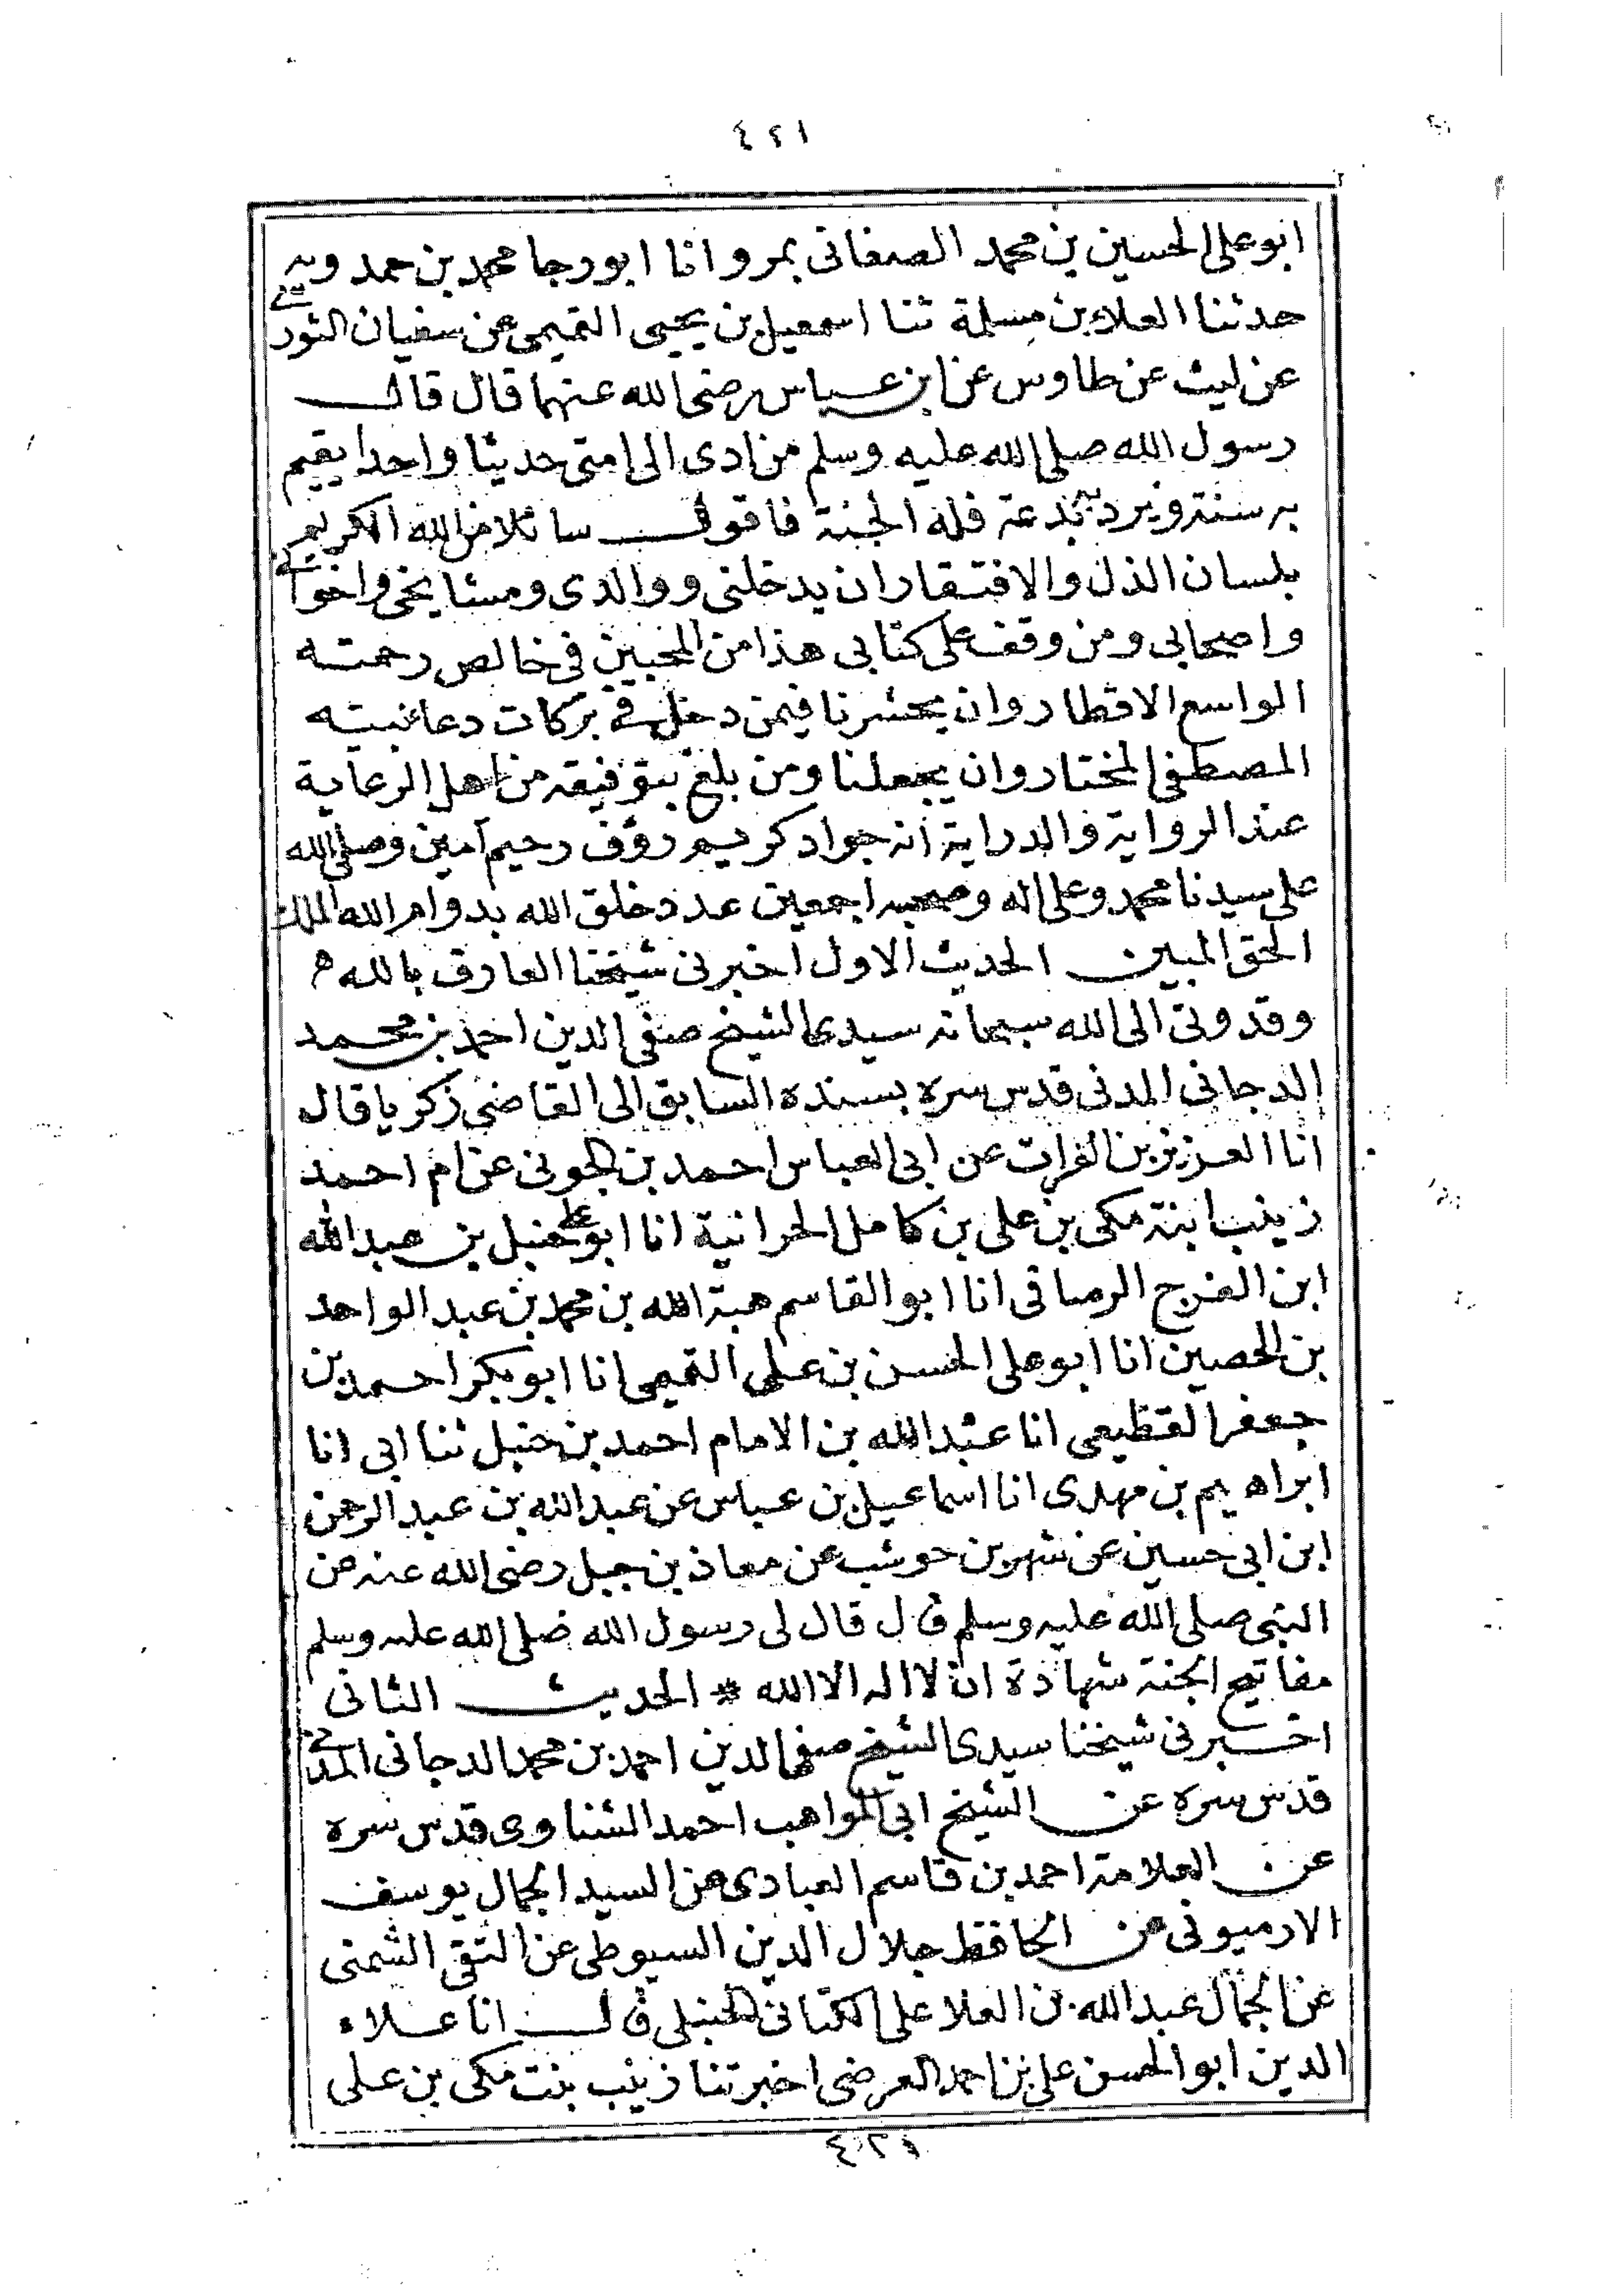 ٤٢١
ابو علي الحسين بن محمد الصغانى بمرو انا ابو رجا محمد بن حمدويه
حدثنا العلاء بن مسلمة ثنا اسمعيل بن يحيى التميمى عن سفيان الثورى
عن ليث عن طاوس عن ابن عباس رضى الله عنهما قال قال
رسول الله صلى الله عليه وسلم من ادى الى امتى حديثا واحدا يقيم
به سنة ويرد به بدعة فله الجنة فاقول سائلا من الله الكريم
بلسان الذل والافتقار ان يدخلنى ووالدى ومشايخى واخوانى
واصحابى ومن وقف على كتابى هذا من المحبين فى خالص رحمته
الواسع الاقطار وان يحشرنا فيمن دخل فى بركات دعا نبيه
المصطفى المختار وان يجعلنا ومن بلغ بتوفيقه من اهل الرعاية
عند الرواية والدراية انه جواد كريم رؤف رحيم آمين وصلى الله
على سيدنا محمد وعلى اله وصحبه اجمعين عدد خلق الله بدوام الله الملك
الحق المبين الحديث الاول اخبرنى شيخنا العارف بالله ه
وقدوتى الى الله سبحانه سيدى الشيخ صفى الدين احمد بن محمد
الدجانى المدنى قدس سره بسنده السابق الى القاضى زكريا قال
انا العزيز بن الفرات عن ابى العباس احمد بن الجوخى عن ام احمد
زينب ابنة مكى بن على بن كامل الحرانية انا ابو على حنبل بن عبد الله
ابن الفرج الرصافى انا ابو القاسم هبة الله بن محمد بن عبد الواحد
بن الحصين انا ابو على الحسن بن على التميمى انا ابو بكر احمد بن
جعفر القطيعى انا عبد الله بن الامام احمد بن حنبل ثنا ابى انا
ابراهيم بن مهدى انا اسماعيل بن عباس عن عبد الله بن عبد الرحمن
ابن ابى حسين عن شهر بن حوشب عن معاذ بن جبل رضى الله عنه عن
النبى صلى الله عليه وسلم قال قال لى رسول الله صلى الله عليه وسلم
مفاتيح الجنة شهادة ان لا اله الا الله * الحديث الثانى
اخبرنى شيخنا سيدى الشيخ صفى الدين احمد بن محمد الدجانى المدنى
قدس سره عن الشيخ ابى المواهب احمد الشناوى قدس سره
عن العلامة احمد بن قاسم العبادى عن السيد الجمال يوسف
الارميونى عن الحافظ جلال الدين السيوطى عن التقى الشمنى
عن الجمال عبد الله بن العلا على الكتانى الحنبلى قال انا علاء
الدين ابو الحسن على بن احمد العرضى اخبرتنا زينب بنت مكى بن على